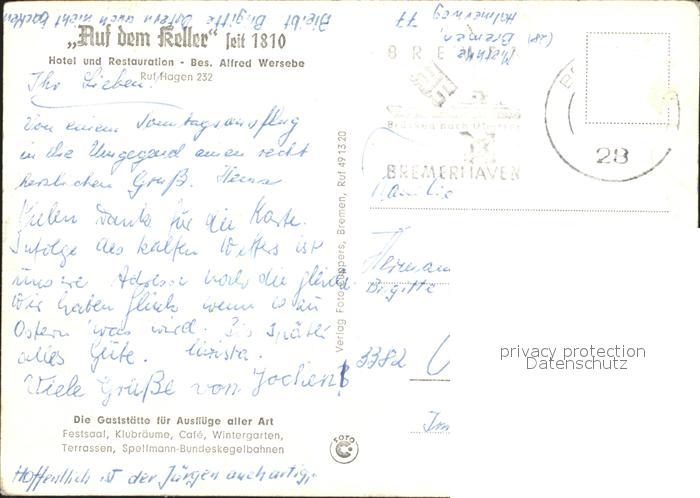 bleibt Brigitte Ostern auch nicht trocken
„Auf dem Keller“ seit 1810
Hotel und Restauration - Bes. Alfred Wersebe
Ruf Hagen 232
Ihr Lieben!
Von einem Sonntagsausflug
in die Umgegend einen recht
herzlichen Gruß.
Vielen Dank für die Karte.
Infolge des kalten Wetters ist
unsere Adresse noch die gleiche.
Wir haben Glück wenn es zu
Ostern was wird. Bis später
alles Gute. Christa.
Viele Grüße von Jochen!
Die Gaststätte für Ausflüge aller Art
Festsaal, Klubräume, Café, Wintergarten,
Terrassen, Spellmann-Bundeskegelbahnen
Hoffentlich ist der Jürgen auch artig.
Verlag Foto Cuppers, Bremen, Ruf 491320
FOTO
C
(28) Bremen,
77
BREMEN
Brücken nach Übersee
BREMERHAVEN
28
Familie
Brigitte
3382
privacy protection
Datenschutz